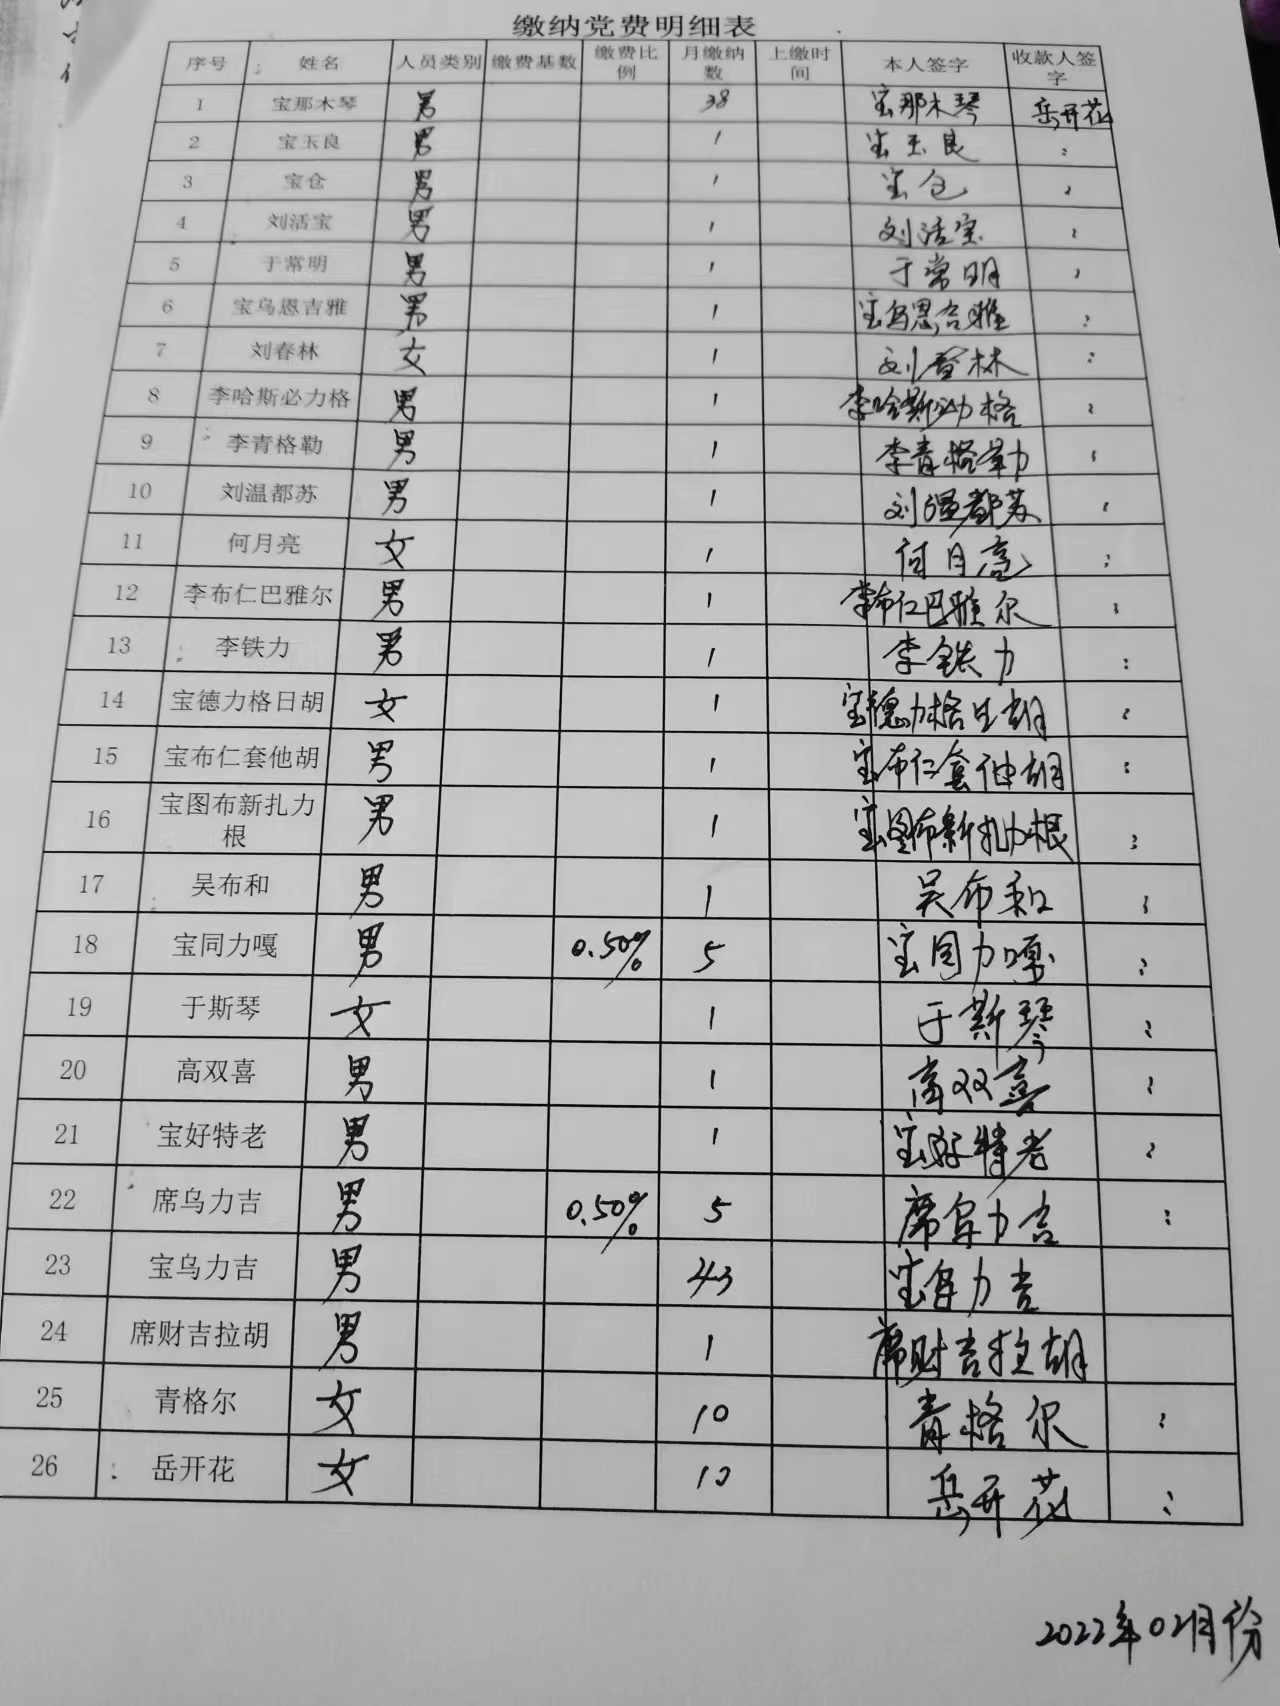 缴纳党费明细表
序号 姓名 人员类别 缴费基数 缴费比例 月缴纳数 上缴时间 本人签字 收款人签字
1 宝那木琴 男 38 宝那木琴 岳开花
2 宝玉良 男 1 宝玉良 :
3 宝仓 男 1 宝仓 :
4 刘活宝 男 1 刘活宝 :
5 于常明 男 1 于常明 :
6 宝乌恩吉雅 男 1 宝乌恩吉雅 :
7 刘春林 女 1 刘春林 :
8 李哈斯必力格 男 1 李哈斯必力格 :
9 李青格勒 男 1 李青格勒 :
10 刘温都苏 男 1 刘温都苏 :
11 何月亮 女 1 何月亮 :
12 李布仁巴雅尔 男 1 李布仁巴雅尔 :
13 李铁力 男 1 李铁力 :
14 宝德力格日胡 女 1 宝德力格日胡 :
15 宝布仁套他胡 男 1 宝布仁套他胡 :
16 宝图布新扎力根 男 1 宝图布新扎力根 :
17 吴布和 男 1 吴布和 :
18 宝同力嘎 男 0.50% 5 宝同力嘎 :
19 于斯琴 女 1 于斯琴 :
20 高双喜 男 1 高双喜 :
21 宝好特老 男 1 宝好特老 :
22 席乌力吉 男 0.50% 5 席乌力吉 :
23 宝乌力吉 男 43 宝乌力吉
24 席财吉拉胡 男 1 席财吉拉胡
25 青格尔 女 10 青格尔 :
26 岳开花 女 10 岳开花 :
2022年02月份